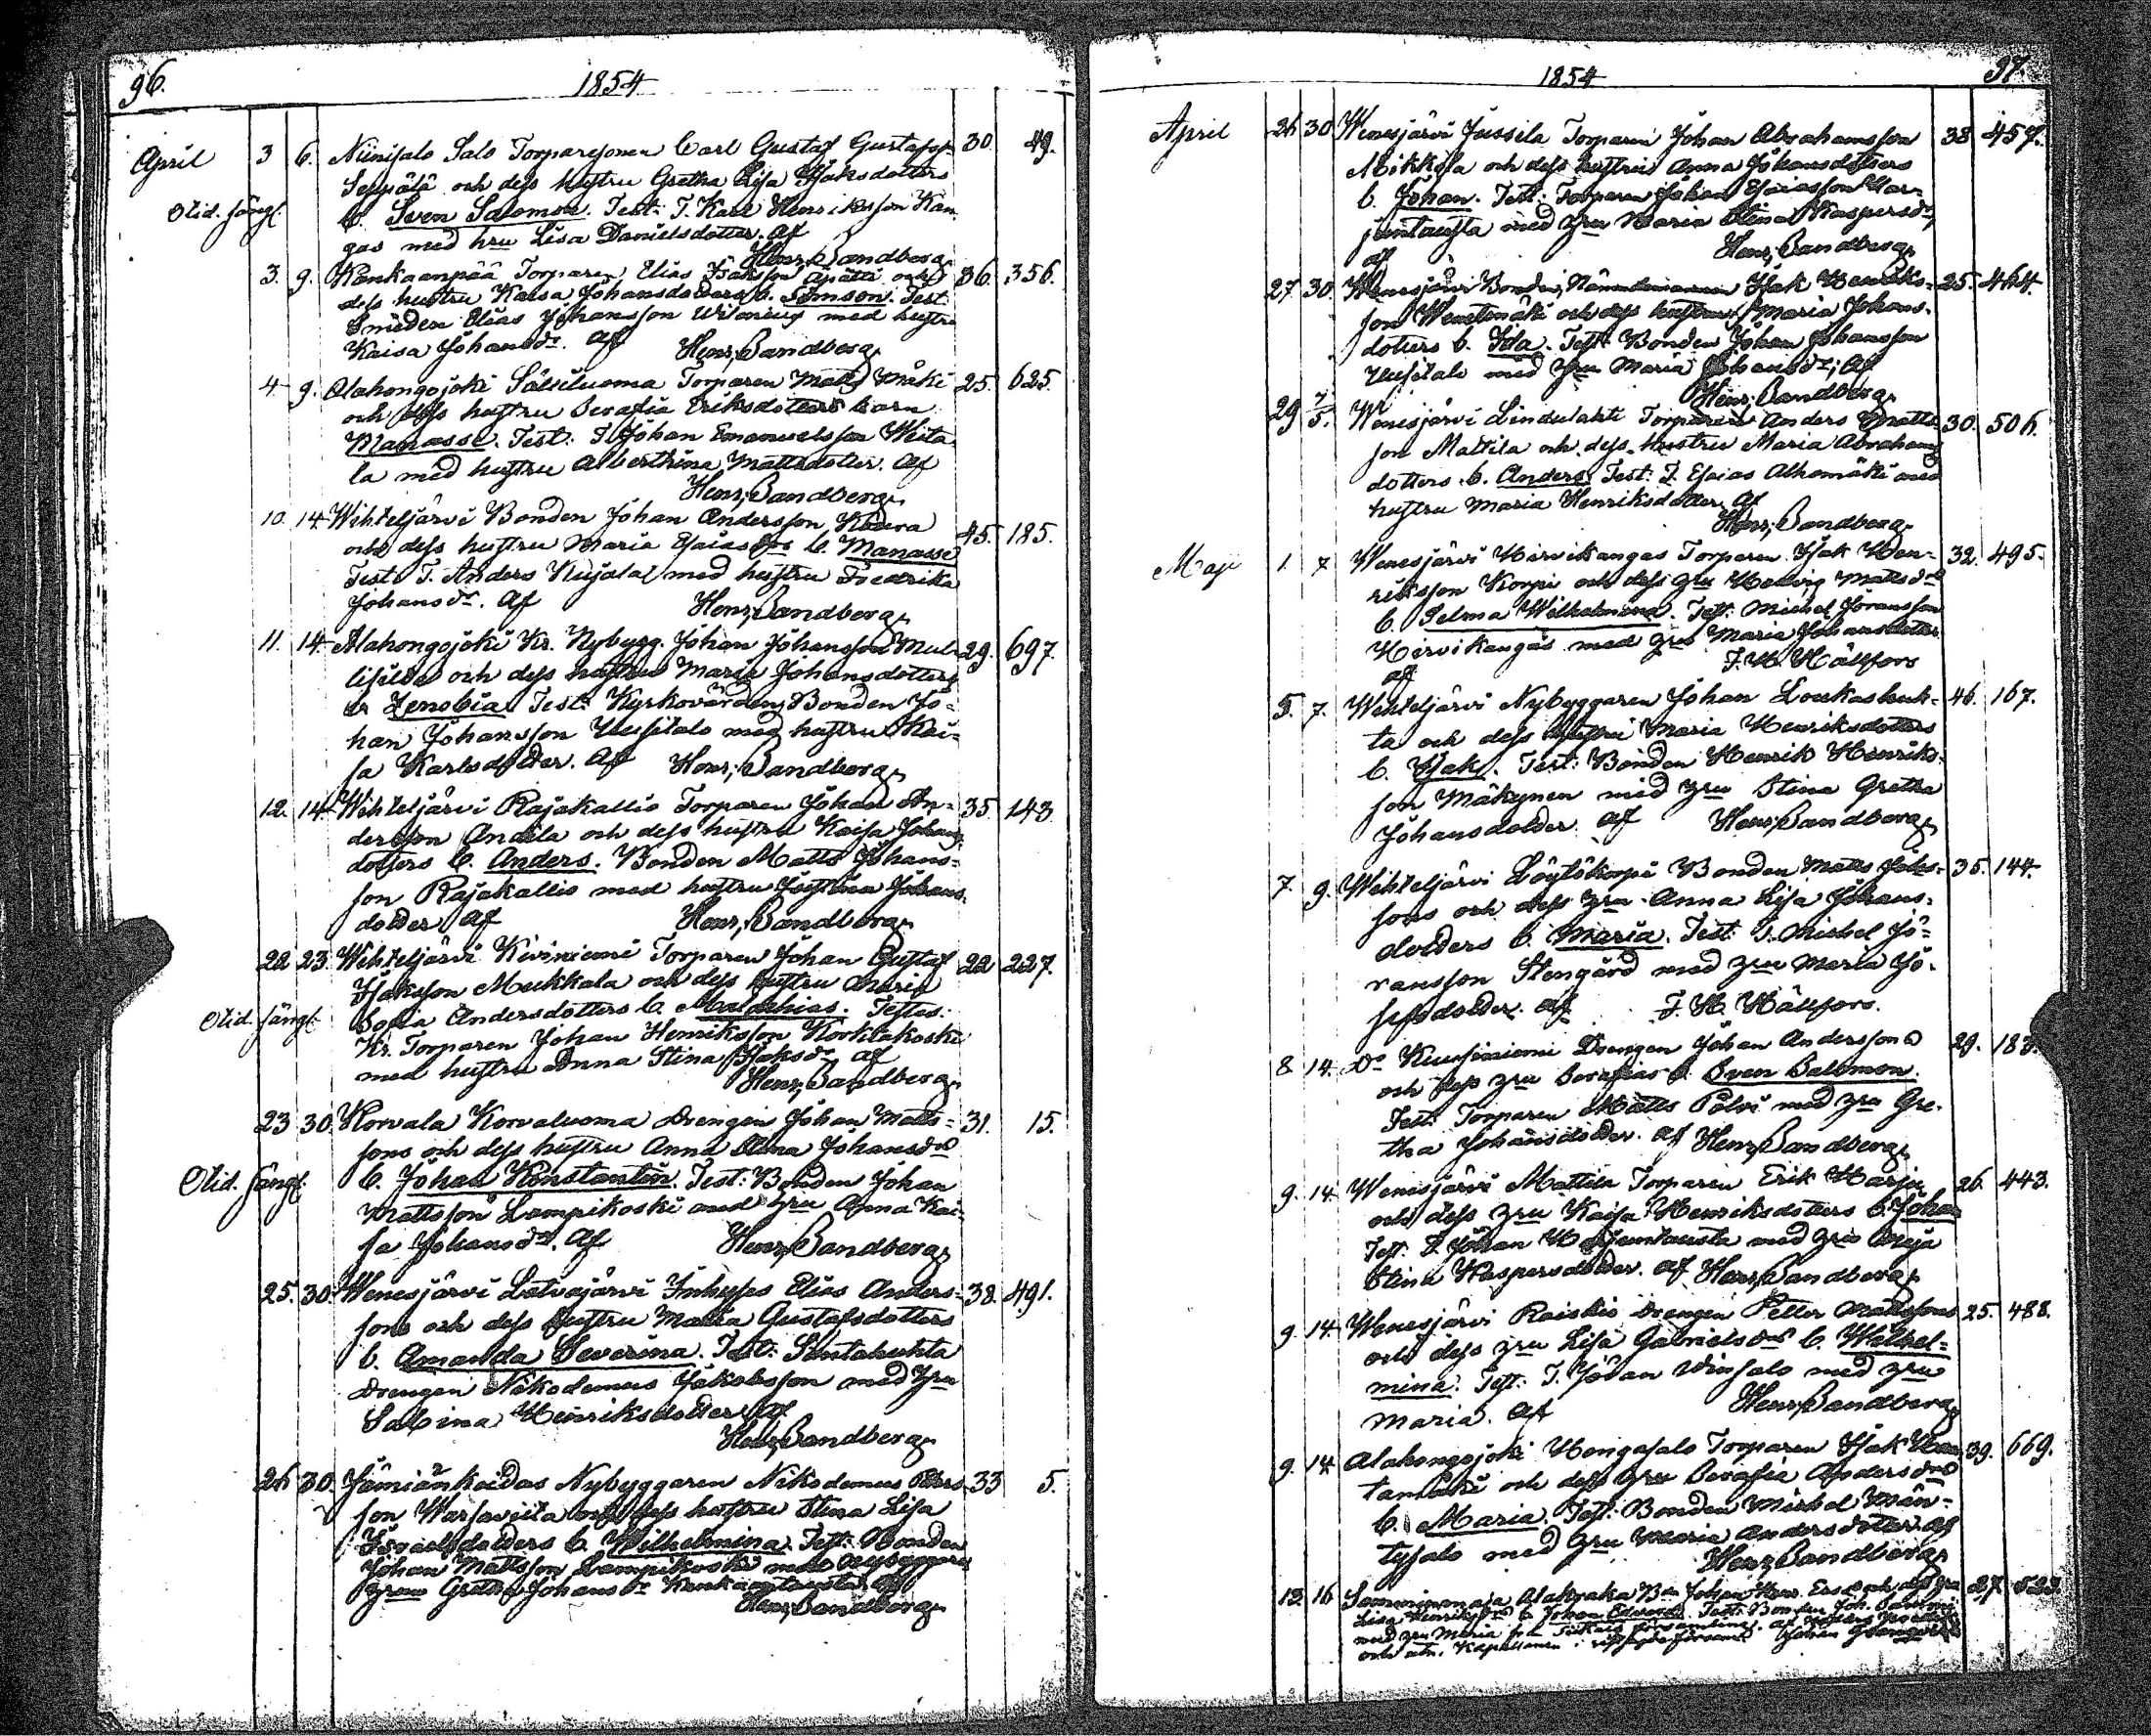 96.
1854
April 3 6. Niinisalo Salo Torparesonen Carl Gustaf Gustafss. 30. 49.
Seppälä och dess hustru Gretha Lisa Isaksdotters
Otid. sängl. b. Sven Salomon. Test: T. Karl Henriksson Kan-
gas med hru Lisa Danielsdotter. Af
Henr. Sandberg.
3. 9. Kankaanpää Torparen Elias Isaksson och 36. 356.
dess hustru Kaisa Johansdotters b. Simson. Test.
Smeden Elias Johansson med hustru
Kaisa Johansdr. Af Henr. Sandberg.
4 9. Alahongojoki Torparen Matts Mäki 25. 625.
och dess hustru Serafia Eriksdotters barn
Manasse. Test: T. Johan Emanuelsson Weita-
la med hustru Alberthina Mattsdotter. Af
Henr. Sandberg.
10. 14 Wihteljärvi Bonden Johan Andersson Koura 45. 185.
och dess hustru Maria Esaiasdrs b. Manasse
Test. T. Anders Kujala med hustru Fredrika
Johansdr. Af Henr. Sandberg.
11. 14. Alahongojoki Kr. Nybygg. Johan Johansson Mul- 29. 697.
lisilta och dess hustru Maria Johansdotters
b. Zenobia. Test: Kyrkovärden Bonden Jo-
han Johansson Uusitalo med hustru Kai-
sa Karlsdotter. Af Henr. Sandberg.
12. 14 Wihteljärvi Rajakallio Torparen Johan An- 35. 143.
dersson Andila och dess hustru Kaisa Johans-
dotters b. Anders. Bonden Matts Johans-
son Rajakallio med hustru Justina Johans-
dotter Af Henr. Sandberg.
22 23. Wihteljärvi Kiviniemi Torparen Johan Gustaf 22 227.
Isaksson Mukkala och dess hustru Maria
Otid. sängl. Sofia Andersdotters b. Malakias. Testes:
Kr. Torparen Johan Henriksson Kohtakoski
med hustru Anna Stina Isaksdr. af
Henr. Sandberg.
23 30. Korvala Korvaluoma Drengen Johan Matts- 31. 15.
sons och dess hustru Anna Stina Johansdrs
Otid. sängl. b. Johan Konstantin. Test: Bonden Johan
Mattsson Lampikoski med hru Anna Kai-
sa Johansdr. Af Henr. Sandberg.
25. 30. Wenesjärvi Latvajärvi Inhyses Elias Anders- 38. 491.
sons och dess hustru Maria Gustafsdotters
b. Amanda Severina. Test: Santahuhta
Drengen Nikodemus Jakobsson med hru
Sabina Henriksdotter Af
Henr. Sandberg.
26 30. Jämiänkeidas Nybyggaren Nikodemus Peters- 33 5.
son och dess hustru Stina Lisa
Israelsdotters b. Wilhelmina. Test: Bonden
Johan Mattsson Lampikoski med nybyggare
hrun Gretha Johansdr Kankaantausta Af
Henr. Sandberg.
1854
97.
April 26 30. Wenesjärvi Jussila Torparen Johan Abrahamsson 38 457.
Mikkola och dess hustru Anna Johansdotters
b. Johan. Test: Torparen Johan Esaiasson Har-
juntausta med hru Maria Stina Kaspersdr.
af Henr. Sandberg.
27 30. Wenesjärvi Bonden, Nämndemannen Isak Henriks- 25. 464.
son Wenesmäki och dess hustru Maria Johans-
dotters b. Ida. Test: Bonden Johan Johansson
Uusitalo med hru Maria Johansdr; Af
Henr. Sandberg.
29 7/5. Wenesjärvi Lindulahti Torparen Anders Matts- 30. 506.
son Mattila och dess hustru Maria Abrahams-
dotters b. Anders. Test: T. Esaias Alhomäki med
hustru Maria Henriksdotter Af
Henr. Sandberg.
Maji 1. 7 Wenesjärvi Hirvikangas Torparen Isak Hen- 32. 495.
riksson Korpi och dess hru Hedvig Mattsdrs
b. Selma Wilhelmina. Test: Michel Jöransson
Hirvikangas med hru Maria Johansdotter
af F. H. Hällfors
5. 7. Wihteljärvi Nybyggaren Johan Loukashuh- 46. 167.
ta och dess hustru Maria Henriksdotters
b. Isak. Test: Bonden Henrik Henriks-
son Mäkynen med hru Stina Gretha
Johansdotter. af Henr. Sandberg.
7. 9. Wihteljärvi Löytökorpi Bonden Matts Johs- 35. 144.
sons och dess hru Anna Lisa Johans-
dotters b. Maria. Test: T. Michel Jö-
ransson Stengård med hru Maria Jo-
sefsdotter. af F. H. Hällfors.
8 14. Do Kuusiniemi Drengen Johan Anderssons 29. 183.
och dess hru Serafias b. Sven Salomon.
Test: Torparen Matts Pölvi med hru Gre-
tha Johansdotter. Af Henr. Sandberg.
9. 14. Wenesjärvi Mattila Torparen Erik Harju 26. 443.
och dess hru Kaisa Henriksdotters b. Johan
Test. T. Johan Harjuntausta med hru Maja
Stina Kaspersdotter. Af Henr. Sandberg.
9. 14 Wenesjärvi Raiskio Drengen Petter Mattssons 25. 488.
och dess hru Lisa Gabrielsdrs b. Wilhel-
mina. Test: T. Johan Uusitalo med hru
Maria. Af Henr. Sandberg.
9. 14 Alahongojoki Hongasalo Torparen Isak Han- 39. 669.
tamäki och dess hru Serafia Andersdrs
b. Maria. Test: Bonden Michel Män-
tysalo med hru Maria Andersdotter. af
Henr. Sandberg.
12 16 Lisa Henriksdrs b. Johan Edvard. Test: Bonden Joh. 27
med hru Maria församling. af
och